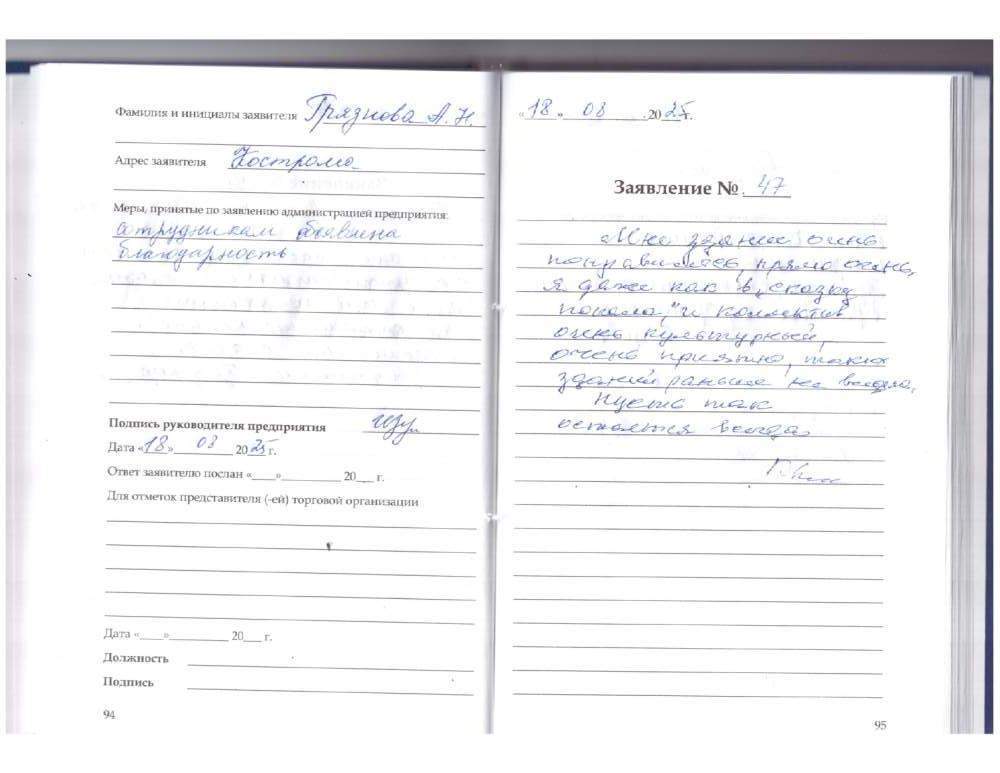 Фамилия и инициалы заявителя Грязнова А. Н.
Адрес заявителя Кострома
Меры, принятые по заявлению администрацией предприятия:
сотрудникам объявлена
благодарность
Подпись руководителя предприятия
Дата «18» 08 2025 г.
Ответ заявителю послан «____»__________ 20___ г.
Для отметок представителя (-ей) торговой организации
Дата «____»__________ 20___ г.
Должность
Подпись
94
«18» 08 2025 г.
Заявление № 47
Мне здание очень
понравилось, прямо очень,
я даже как в „сказку
попала," и коллектив
очень культурный,
очень приятно, таких
зданий раньше не видела,
Пусть так
остаться всегда
95